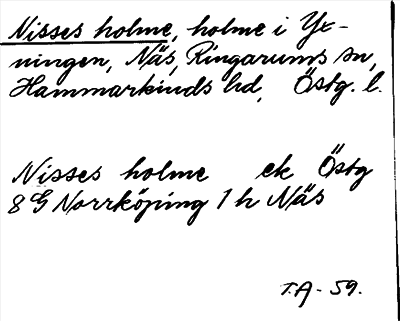 Nisses holme, holme i Yx-
ningen, Näs, Ringarums sn,
Hammarkinds hd, Östg. l.
Nisses holme ek Östg
8 G Norrköping 1 h Näs
T.A - 59.